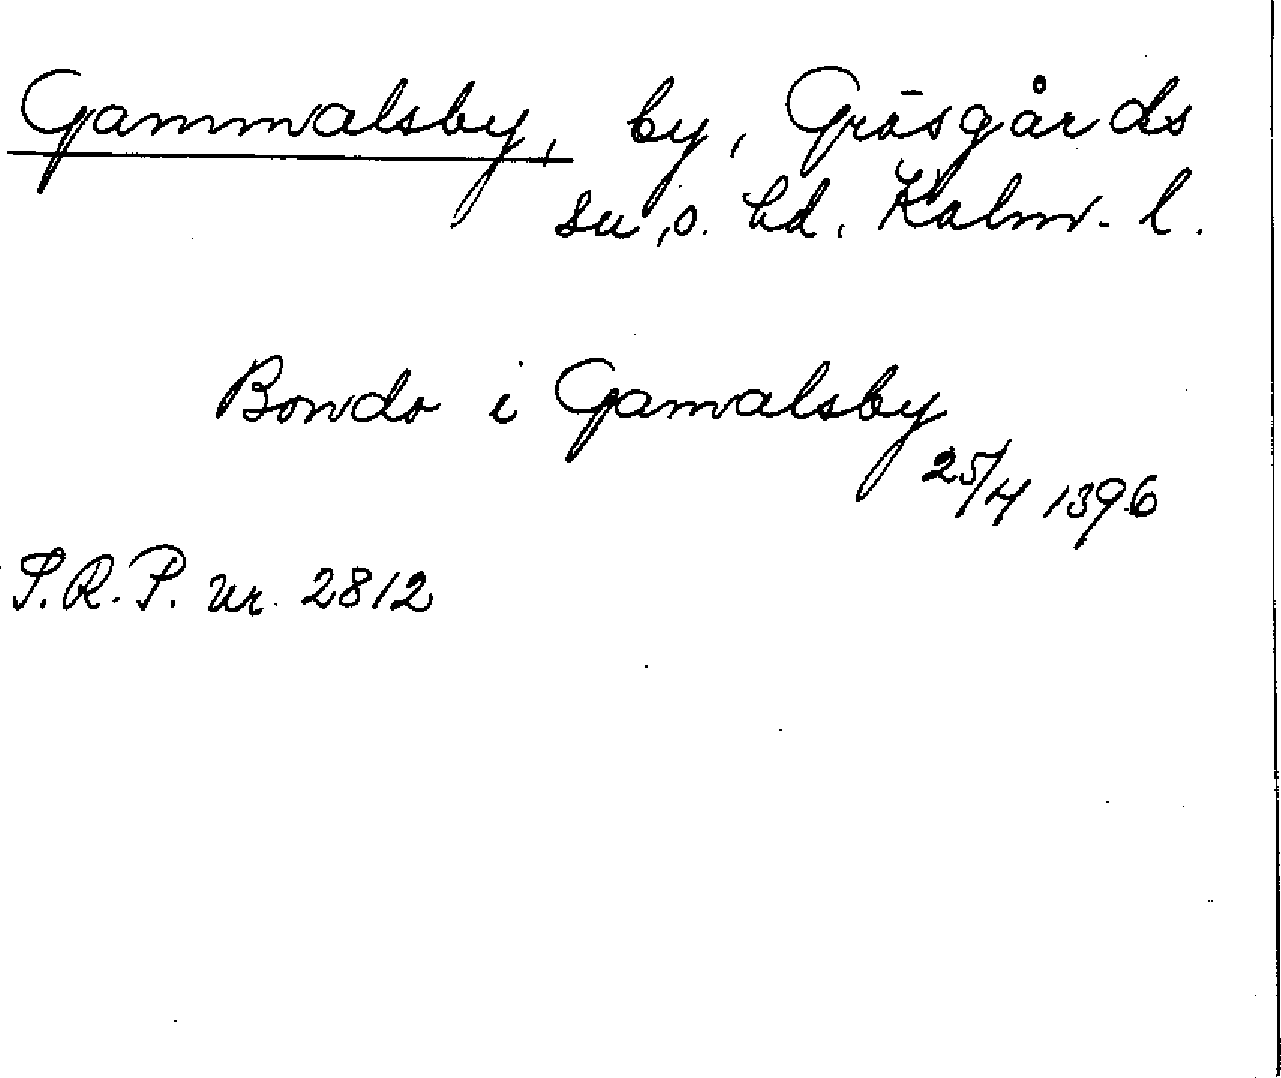 Gammalsby, by, Gräsgårds
sn, o. hd, Kalm. l.
Bondo i Gamalsby
25/4 1396
S.R.P. nr. 2812